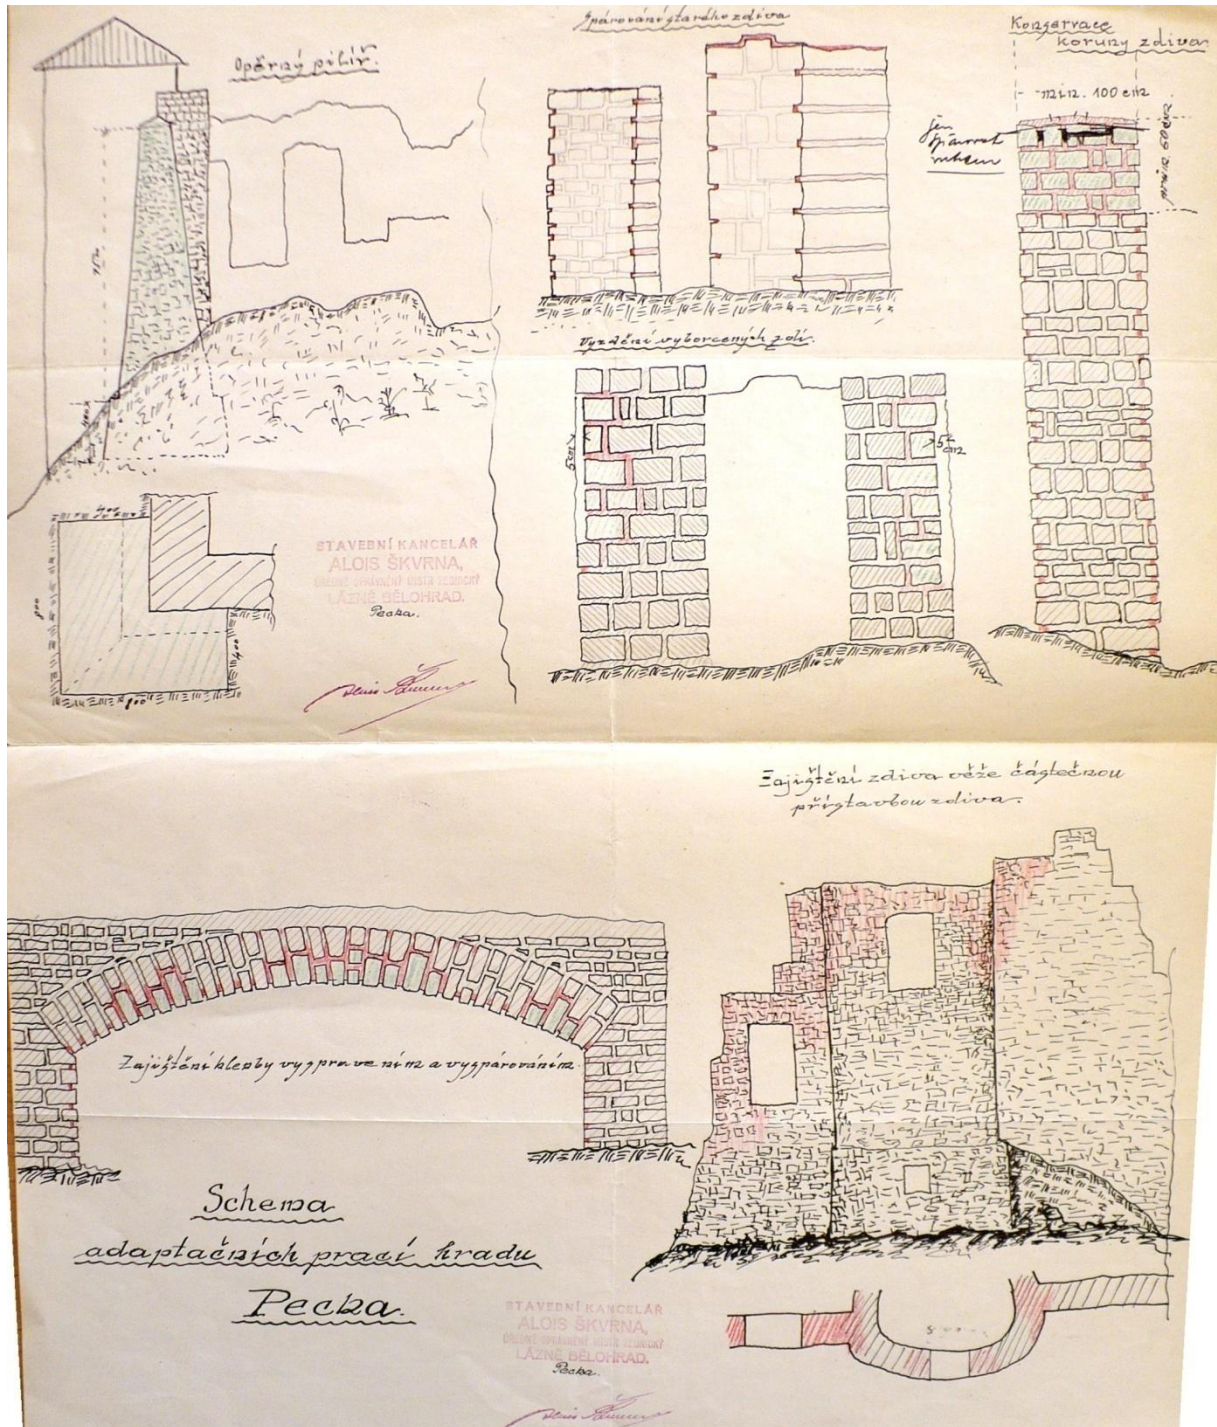 Opěrný pilíř.
Spárování starého zdiva
Konservace
koruny zdiva.
min. 100 cm
jen
spárovat
min. 60 cm
Vyzdění vyborcených zdí.
5 cm
5 cm
400
800
400
800
STAVEBNÍ KANCELÁŘ
ALOIS ŠKVRNA,
ÚŘEDNĚ OPRÁVNĚNÝ MISTR ZEDNICKÝ
LÁZNĚ BĚLOHRAD.
Pecka.
Zajištění zdiva věže částečnou
přístavbou zdiva.
Zajištění klenby vyspravením a vyspárováním.
Schema
adaptačních prací hradu
Pecka.
STAVEBNÍ KANCELÁŘ
ALOIS ŠKVRNA,
ÚŘEDNĚ OPRÁVNĚNÝ MISTR ZEDNICKÝ
LÁZNĚ BĚLOHRAD.
Pecka.